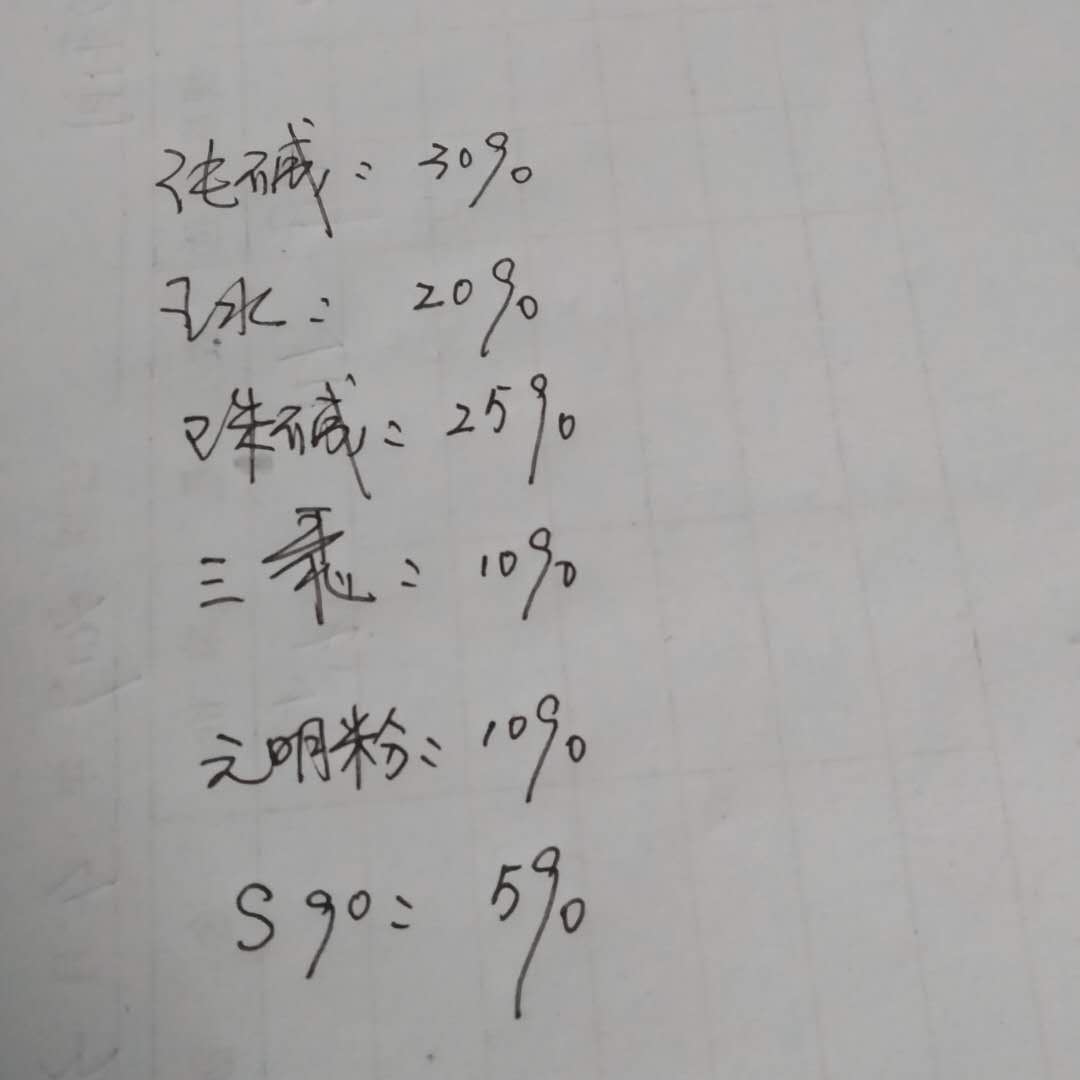 纯碱: 30%
水: 20%
珠碱: 25%
三乘: 10%
元明粉: 10%
S90: 5%